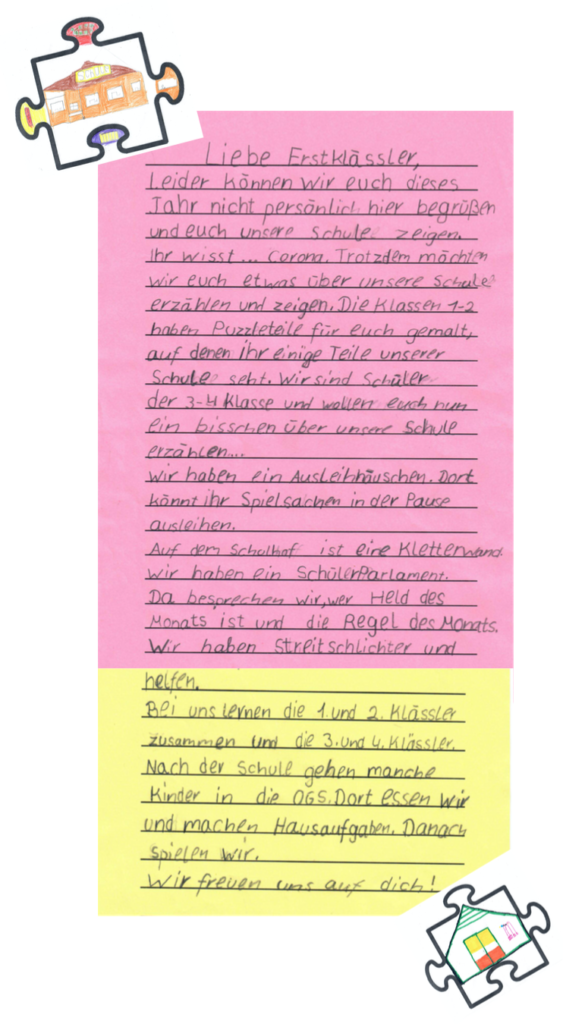 Liebe Erstklässler,
Leider können wir euch dieses
Jahr nicht persönlich hier begrüßen
und euch unsere Schule zeigen.
Ihr wisst... Corona. Trotzdem möchten
wir euch etwas über unsere Schule
erzählen und zeigen. Die Klassen 1-2
haben Puzzleteile für euch gemalt,
auf denen Ihr einige Teile unserer
Schule seht. Wir sind Schüler
der 3-4 Klasse und wollen euch nun
ein bisschen über unsere Schule
erzählen...
Wir haben ein Ausleihhäuschen. Dort
könnt ihr Spielsachen in der Pause
ausleihen.
Auf dem Schulhof ist eine Kletterwand
Wir haben ein SchülerParlament.
Da besprechen wir, wer Held des
Monats ist und die Regel des Monats.
Wir haben Streitschlichter und
helfen.
Bei uns lernen die 1. und 2. Klässler
zusammen und die 3. und 4. Klässler.
Nach der Schule gehen manche
Kinder in die OGS. Dort essen wir
und machen Hausaufgaben. Danach
spielen wir.
Wir freuen uns auf dich!